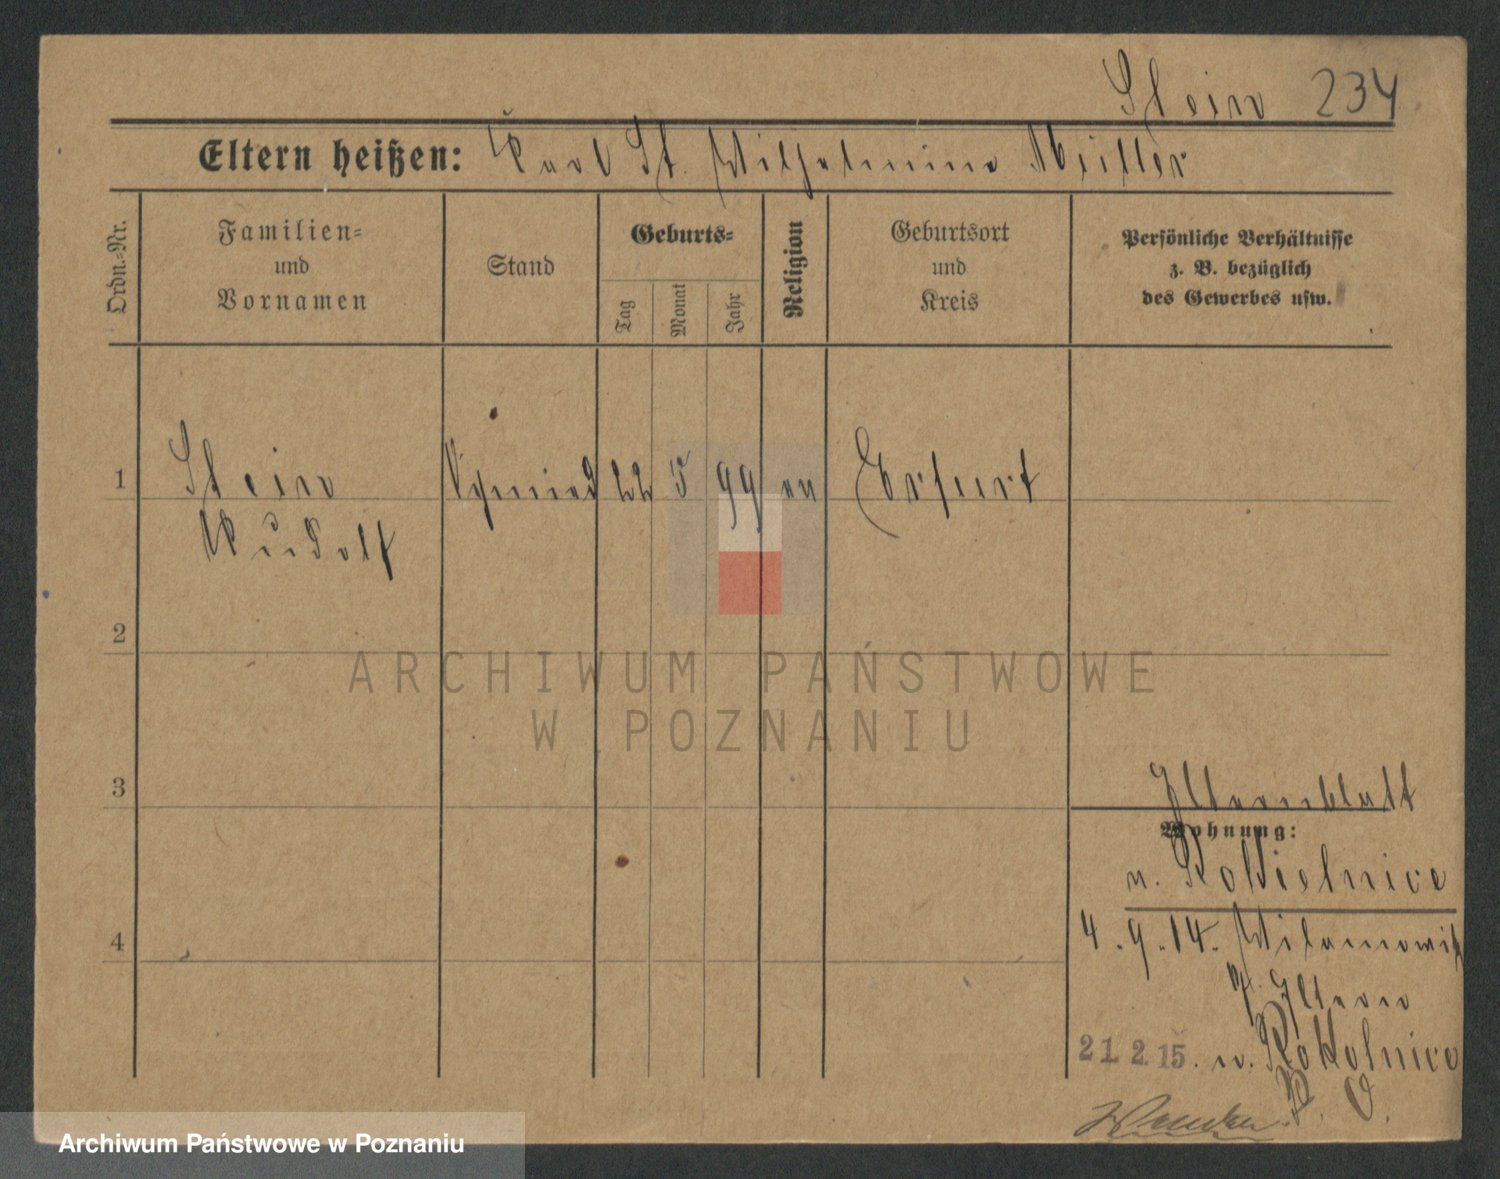 Stein 234
Eltern heißen: Karl St. Wilhelmine Müller
Ordn.-Nr.
Familien-
und
Vornamen
Stand
Geburts-
Tag
Monat
Jahr
Religion
Geburtsort
und
Kreis
Persönliche Verhältnisse
z. B. bezüglich
des Gewerbes usw.
1 Stein Schmied 22 5 99 ev Erfurt
Rudolf
2
3
4
Elternblatt
Wohnung:
n.
4.9.14.
Eltern
21 2 15. n.
ARCHIWUM PAŃSTWOWE
W POZNANIU
Archiwum Państwowe w Poznaniu